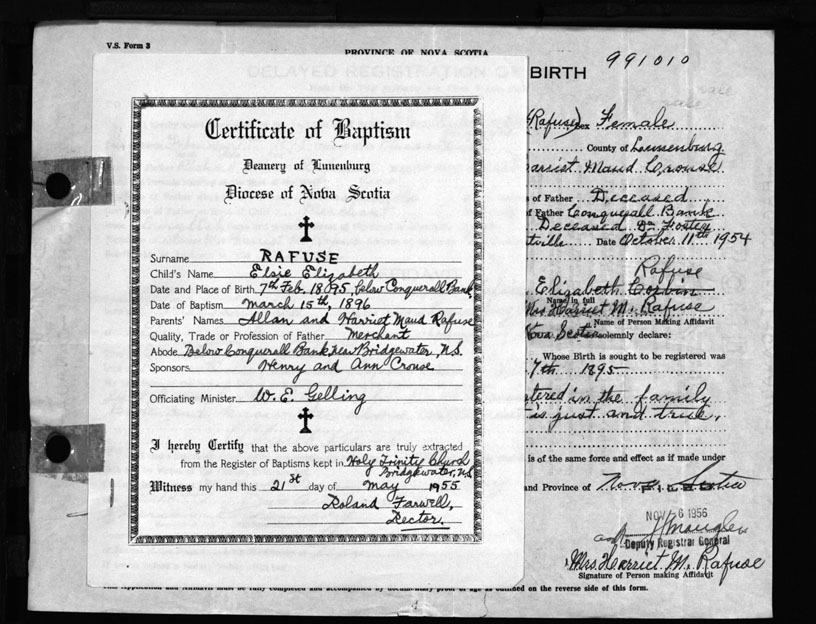 V.S. Form 3
PROVINCE OF NOVA SCOTIA
DELAYED REGISTRATION OF BIRTH
991010
Certificate of Baptism
Deanery of Lunenburg
Diocese of Nova Scotia
Surname RAFUSE
Child's Name Elsie Elizabeth
Date and Place of Birth 7th Feb. 1895, Below Conquerall Bank,
Date of Baptism March 15th, 1896
Parents' Names Allan and Harriet Maud Rafuse
Quality, Trade or Profession of Father Merchant
Abode Below Conquerall Bank near Bridgewater, N.S.
Sponsors Henry and Ann Crouse
Officiating Minister W. E. Gelling
I hereby Certify that the above particulars are truly extracted
from the Register of Baptisms kept in Holy Trinity Church
Bridgewater, N.S.
Witness my hand this 21st day of May 1955
Roland Farwell,
Rector.
(Rafuse) Sex Female
County of Lunenburg
Harriet Maud Crouse
s of Father Deceased
f Father Conquerall Bank
Deceased Dr. Foster
tville Date October 11th 1954
Rafuse
Elizabeth Corbin
Name in full
Mrs Harriet M. Rafuse
Name of Person Making Affidavit
Nova Scotia solemnly declare:
Whose Birth is sought to be registered was
7th 1895
tered in the family
is just and true.
is of the same force and effect as if made under
and Province of Nova Scotia
NOV 6 1956
Deputy Registrar General
Mrs. Harriet M. Rafuse
Signature of Person making Affidavit
This Application and Affidavit must be fully completed and accompanied by documentary proof of age as outlined on the reverse side of this form.